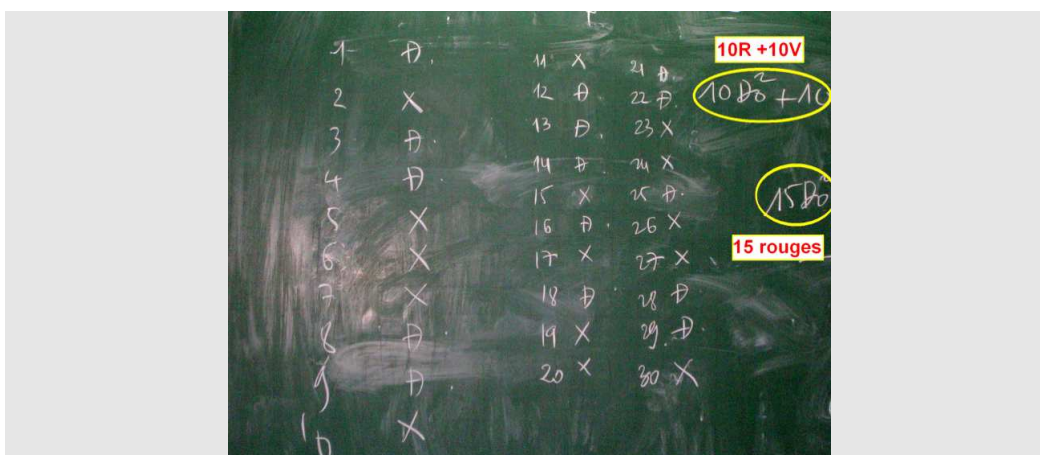 1 D.
2 X
3 D.
4 D.
5 X
6 X
7 X
8 D
9 D.
10 X
11 X
12 D
13 D.
14 D.
15 X
16 D.
17 X
18 D
19 X
20 X
21 D.
22 D.
23 X
24 X
25 D.
26 X
27 X
28 D
29. D.
30 X
10R +10V
10 Do² + 10
15 Do²
15 rouges